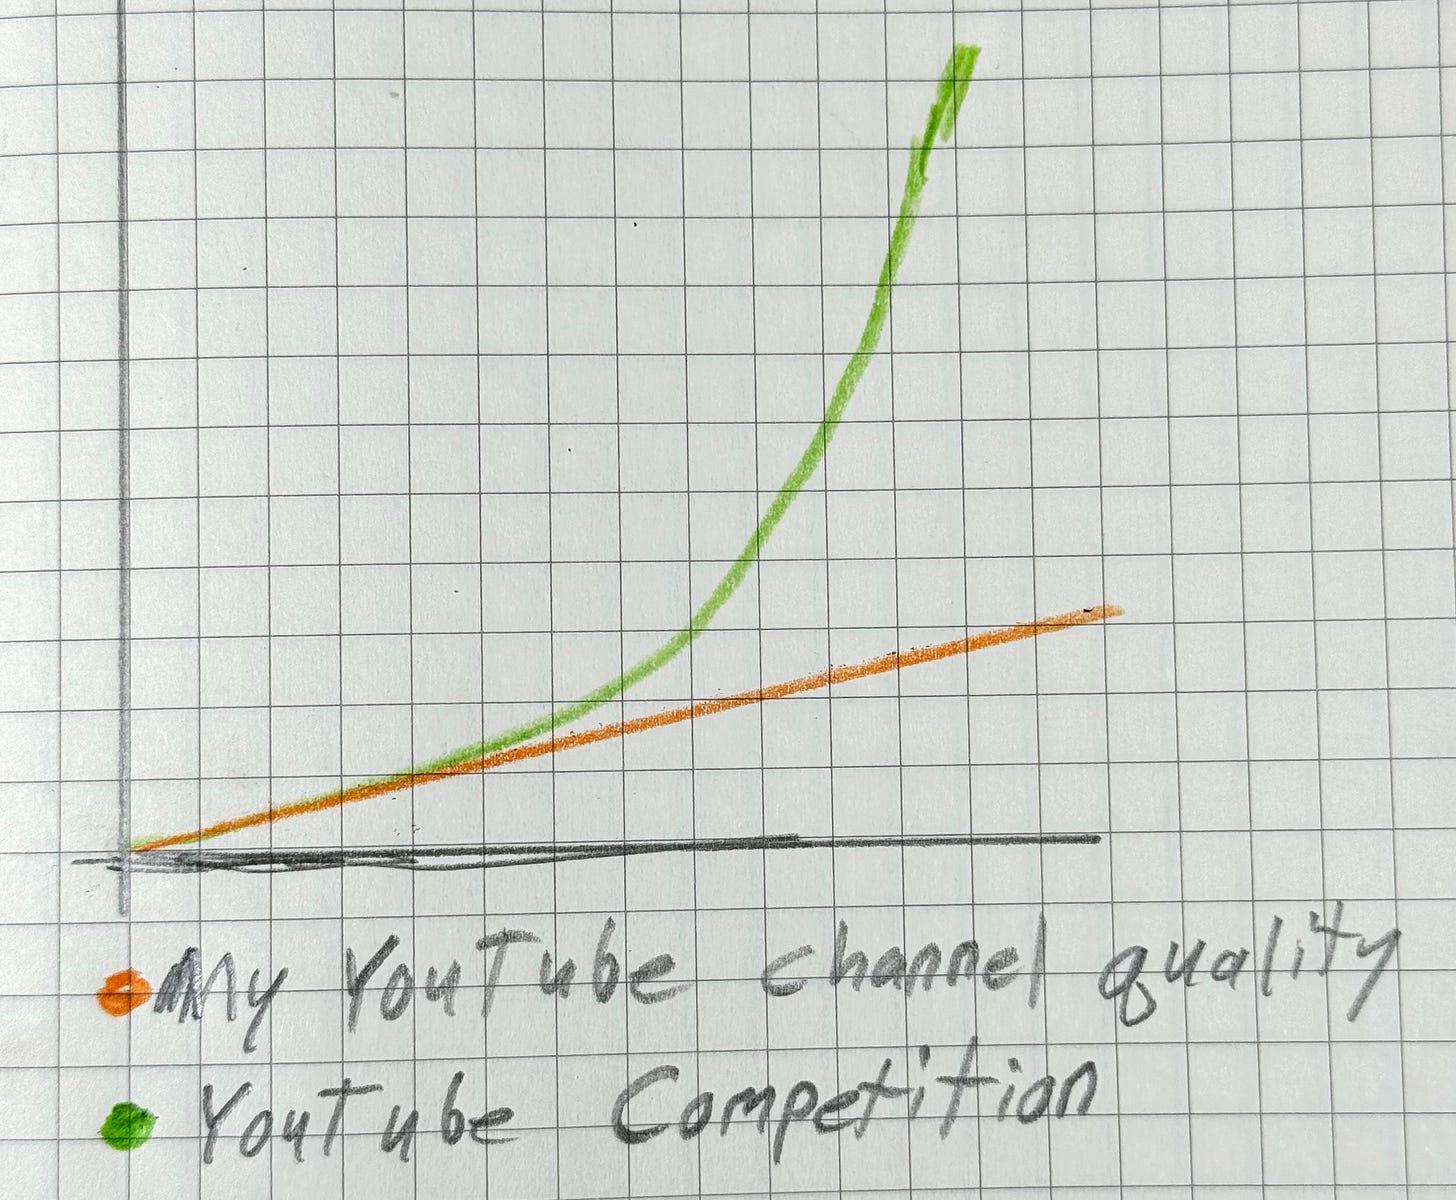 My YouTube channel quality
YouTube Competition